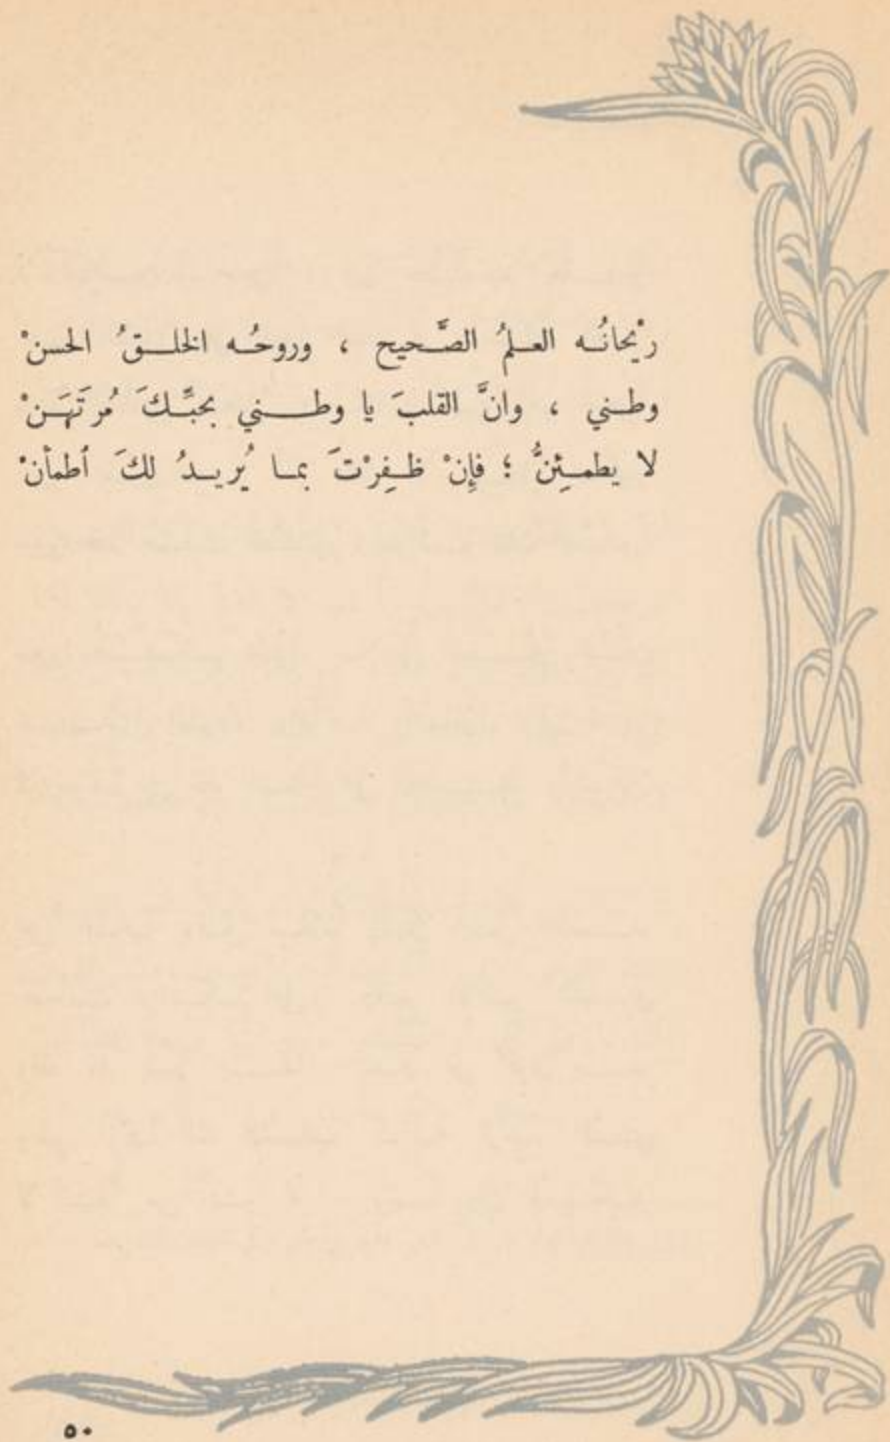 رَيْحانُـه العـلمُ الصَّـحيح ، وروحُـه الخلـــقُ الحسنْ
وطـني ، وانَّ القلبَ يا وطـــني بحبِّـكَ مُرتَهَـنْ
لا يطمـئِنُّ ؛ فإِنْ ظـفِرْتَ بمـا يُريـدُ لكَ اُطمأنْ
٥٠